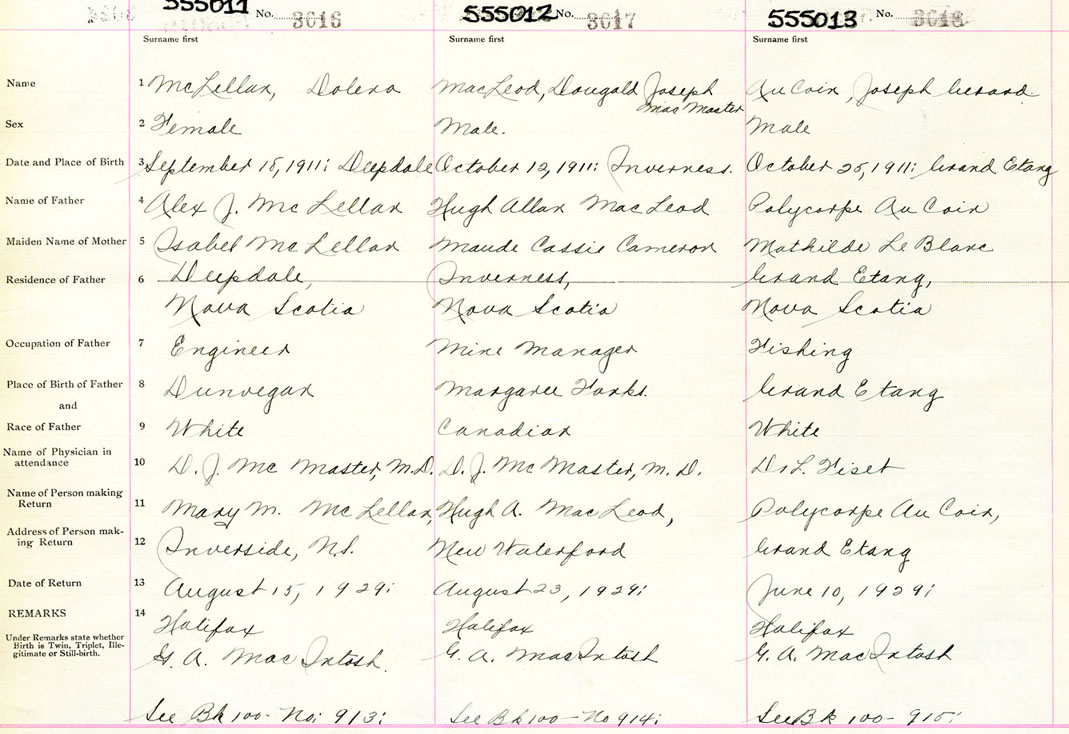 555011 No. 3016 555012 No. 3017 555013 No. 3018
Surname first Surname first Surname first
Name 1 McLellan, Dolena MacLeod, Dougald Joseph Au Coin, Joseph Gerard
Mac Master
Sex 2 Female Male. Male
Date and Place of Birth 3 September 18, 1911; Deepdale October 12, 1911; Inverness. October 25, 1911; Grand Etang
Name of Father 4 Alex J. Mc Lellan Hugh Allan MacLeod Polycorpe Au Coin
Maiden Name of Mother 5 Isabel McLellan Maude Cassie Cameron Mathilde Le Blanc
Residence of Father 6 Deepdale, Inverness, Grand Etang,
Nova Scotia Nova Scotia Nova Scotia
Occupation of Father 7 Engineer Mine Manager Fishing
Place of Birth of Father 8 Dunvegan Margaree Forks. Grand Etang
and
Race of Father 9 White Canadian White
Name of Physician in
attendance 10 D. J. Mc Master, M.D. D. J. McMaster, M. D. Dr L. Fiset
Name of Person making
Return 11 Mary M. McLellan, Hugh A. MacLeod, Polycorpe Au Coin,
Address of Person mak-
ing Return 12 Inverside, N.S. New Waterford Grand Etang
Date of Return 13 August 15, 1929; August 23, 1929; June 10, 1929;
REMARKS 14 Halifax Halifax Halifax
Under Remarks state whether
Birth is Twin, Triplet, Ille-
gitimate or Still-birth.
G. A. MacIntosh. G. A. MacIntosh G. A. MacIntosh
See Bk 100- No: 913; See Bk 100 - No 914; See Bk 100 - 915;